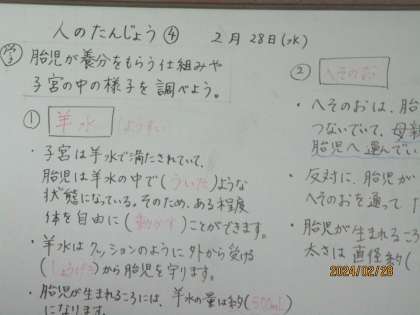 人のたんじょう④ 2月28日(水)
学③ 胎児が養分をもらう仕組みや
子宮の中の様子を調べよう。
① 羊水 (ようすい)
・子宮は羊水で満たされていて、
胎児は羊水の中で(ういた)ような
状態になっている。そのため、ある程度
体を自由に(動かす)ことができます。
・羊水はクッションのように外から受ける
(しょうげき)から胎児を守ります。
・胎児が生まれるころには、羊水の量は約(500mL)
になります。
② へそのお
・へそのおは、胎
つないでいて、母親
胎児へ運んでい
・反対に、胎児が
へそのおを通って
・胎児が生まれるころ
太さは直径約(
2024/02/28